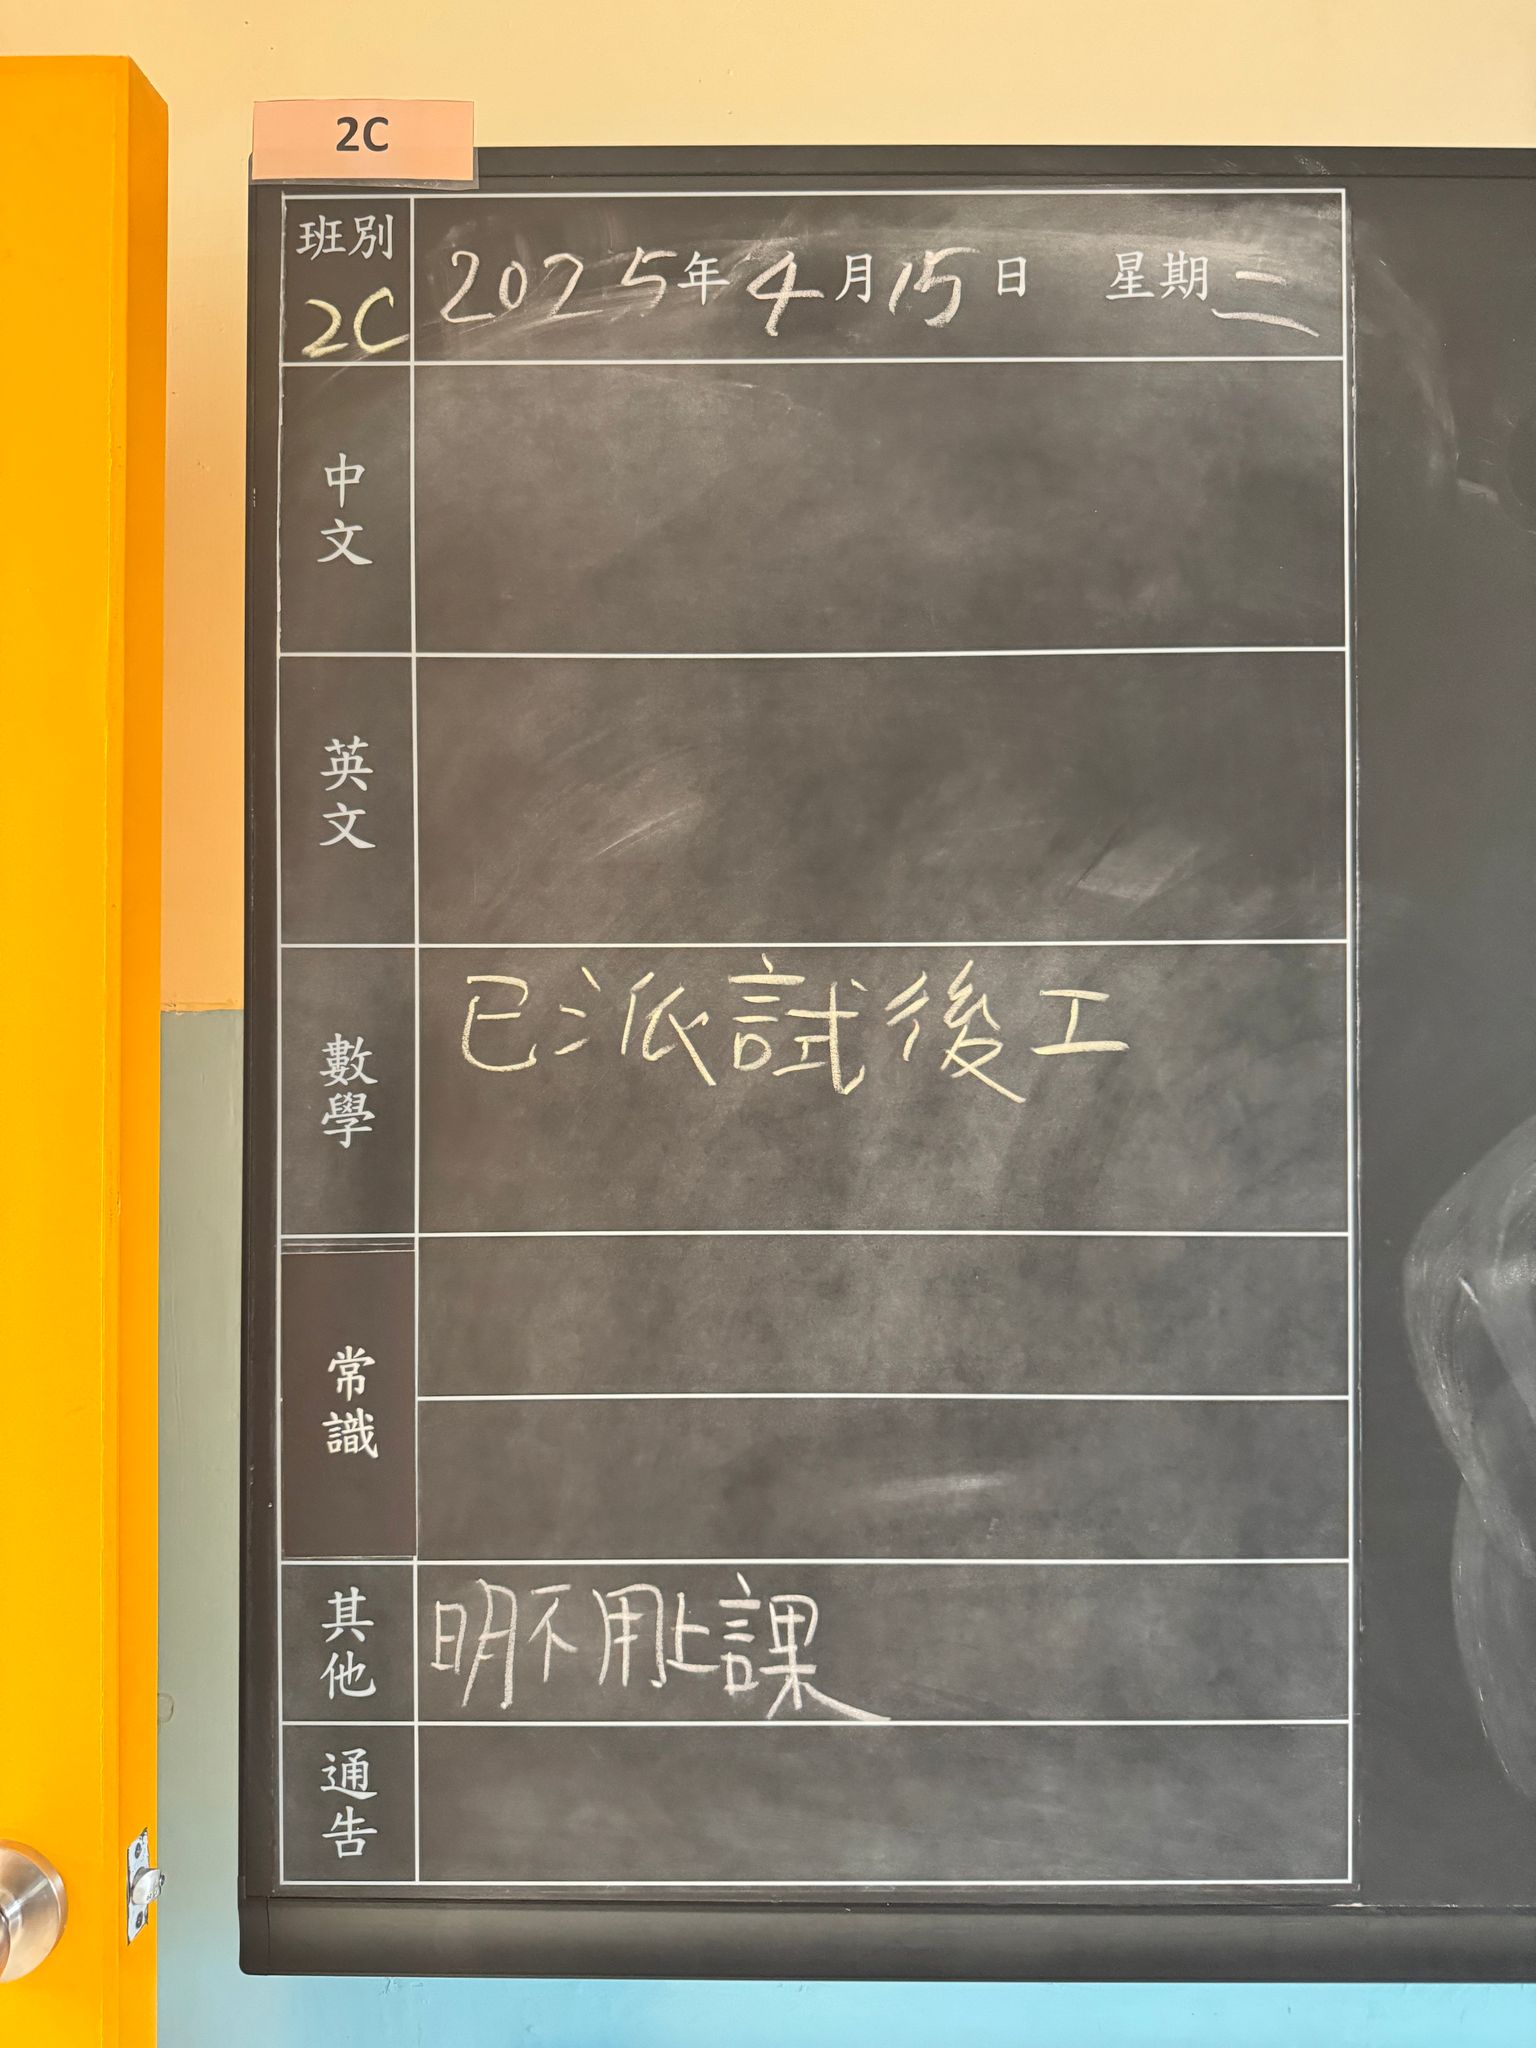 2C
班別
2C
2025年4月15日 星期二
中文
英文
數學
已派試後工
常識
其他
明不用上課
通告